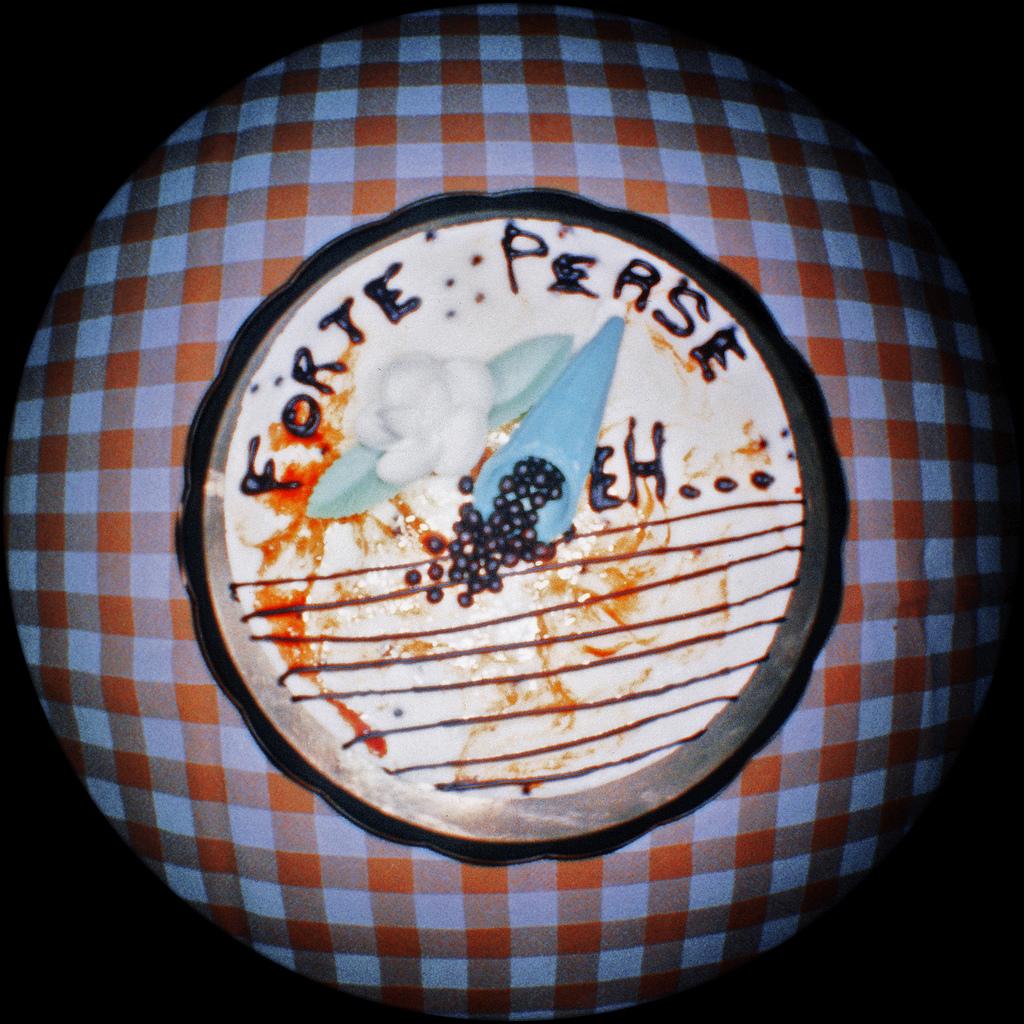 FORTE PERSE
EH...